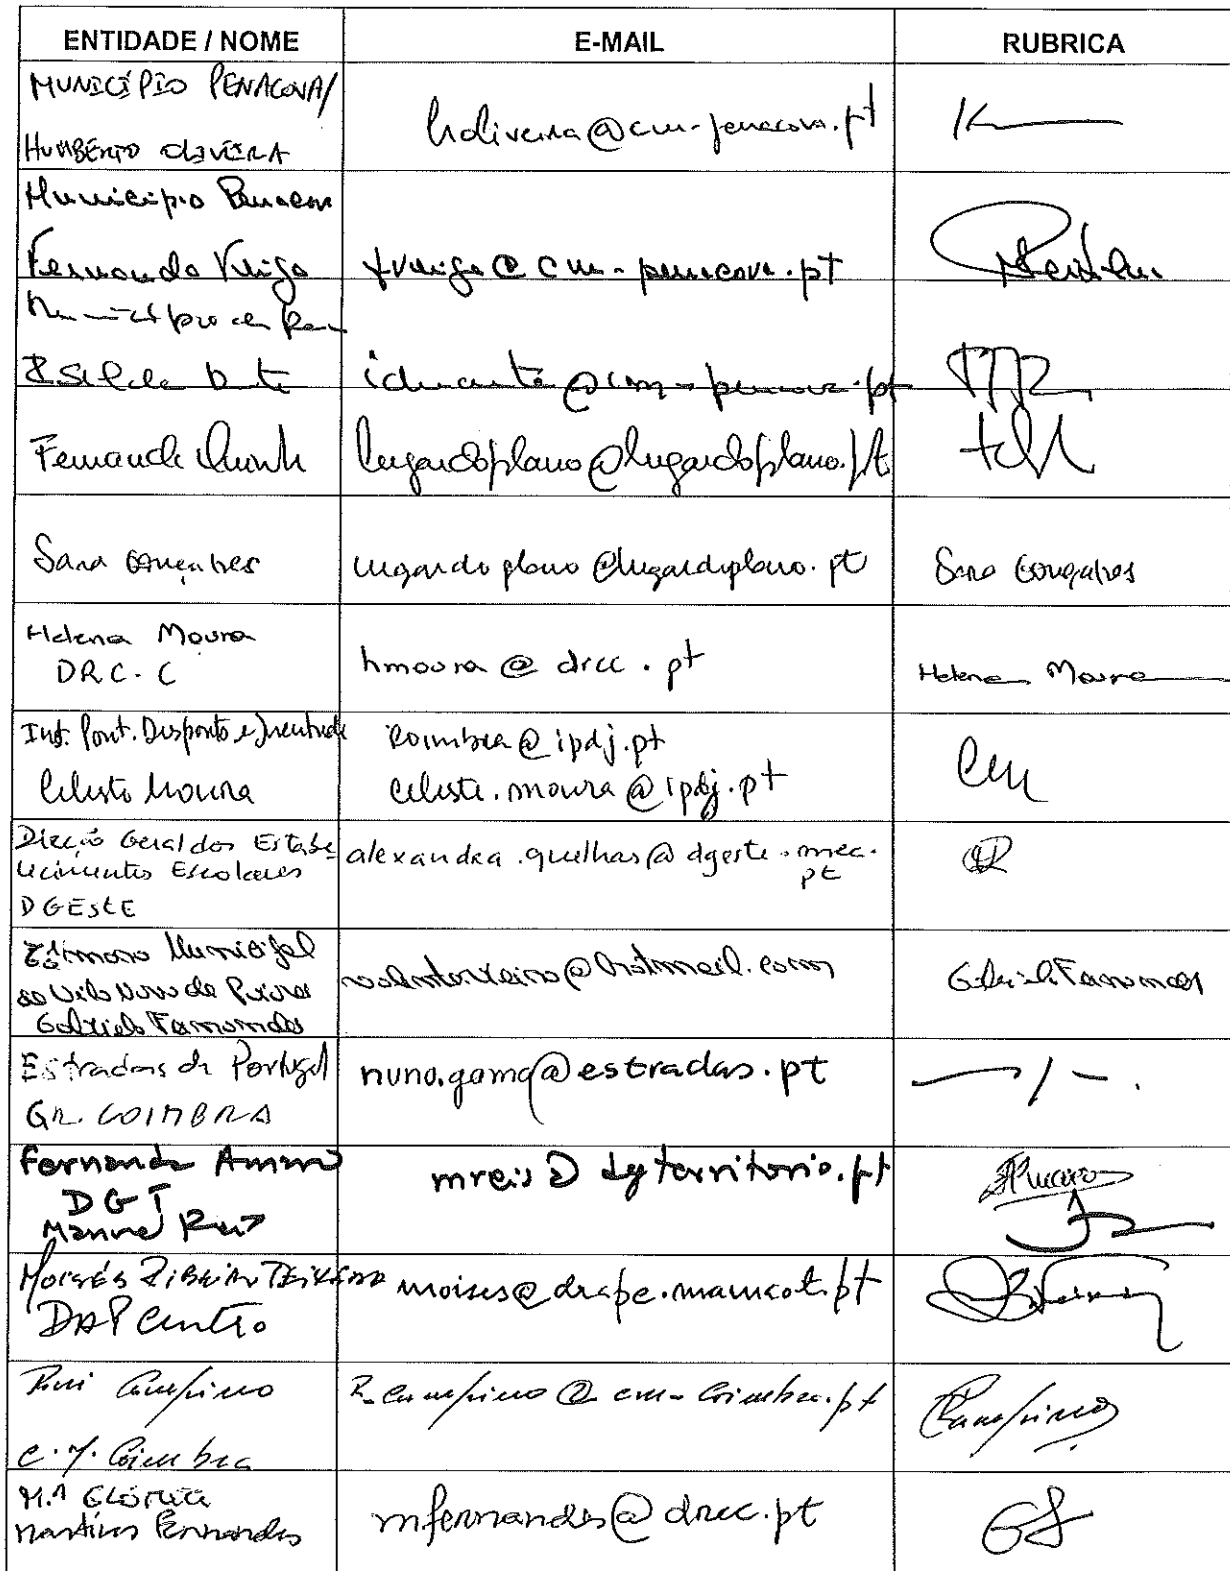 ENTIDADE / NOME E-MAIL RUBRICA
MUNICÍPIO PENACOVA/
HUMBERTO OLIVEIRA
holiveira@cm-penacova.pt
Município Penacova
Fernanda Veiga fveiga@cm-penacova.pt
Isilda Duarte iduarte@cm-penacova.pt
Fernanda lugardoplano@lugardoplano.pt
Sara Gonçalves lugardoplano@lugardoplano.pt Sara Gonçalves
Helena Moura
DRC. C
hmoura@drcc.pt Helena Moura
Inst. Port. Desporto e Juventude
Celeste Moura
coimbra@ipdj.pt
celeste.moura@ipdj.pt
Direção Geral dos Estabe-
lecimentos Escolares
DGEstE
alexandra.quelhas@dgeste.mec.
pt
Câmara Municipal
de Vila Nova de Poiares
Gabriela Fernandes
@hotmail.com Fernandes
Estradas de Portugal
GR. COIMBRA
nuno.gama@estradas.pt
Fernanda
DGT
Manuel Reis
mreis@dgterritorio.pt
MOISÉS RIBEIRO TEIXEIRA
DRAP Centro
moises@drapc.mamaot.pt
Rui Campino
C. M. Coimbra
R.campino@cm-coimbra.pt Campino
M.ª GLÓRIA
Martins Fernandes
mfernandes@drcc.pt GF